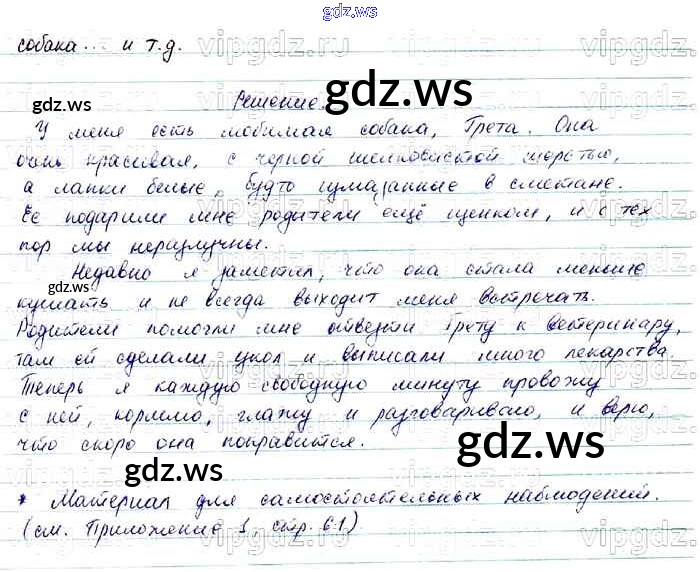 gdz.ws
собака... и т.д.
Решение.
У меня есть любимая собака, Грета. Она
очень красивая, с черной шелковистой шерстью,
а лапки белые, будто измазанные в сметане.
Ее подарили мне родители ещё щенком, и с тех
пор мы неразлучны.
Недавно я заметил, что она стала меньше
кушать и не всегда выходит меня встречать.
Родители помогли мне отвезти Грету к ветеринару,
там ей сделали укол и выписали много лекарства.
Теперь я каждую свободную минуту провожу
с ней, кормлю, глажу и разговариваю, и верю,
что скоро она поправится.
* Материал для самостоятельных наблюдений.
(см. Приложение 1, стр. 61)